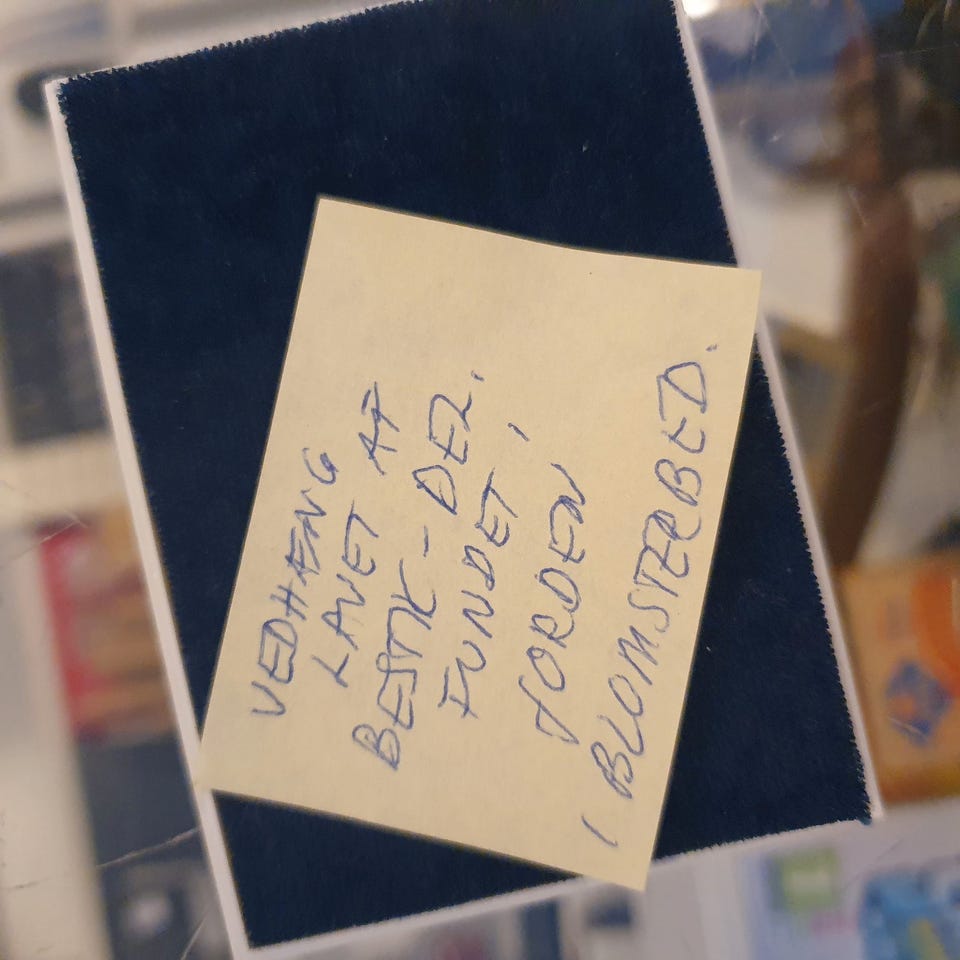 VEDHÆNG
LAVET AF
BESTIK-DEL,
FUNDET I
JORDEN
I BLOMSTERBED.